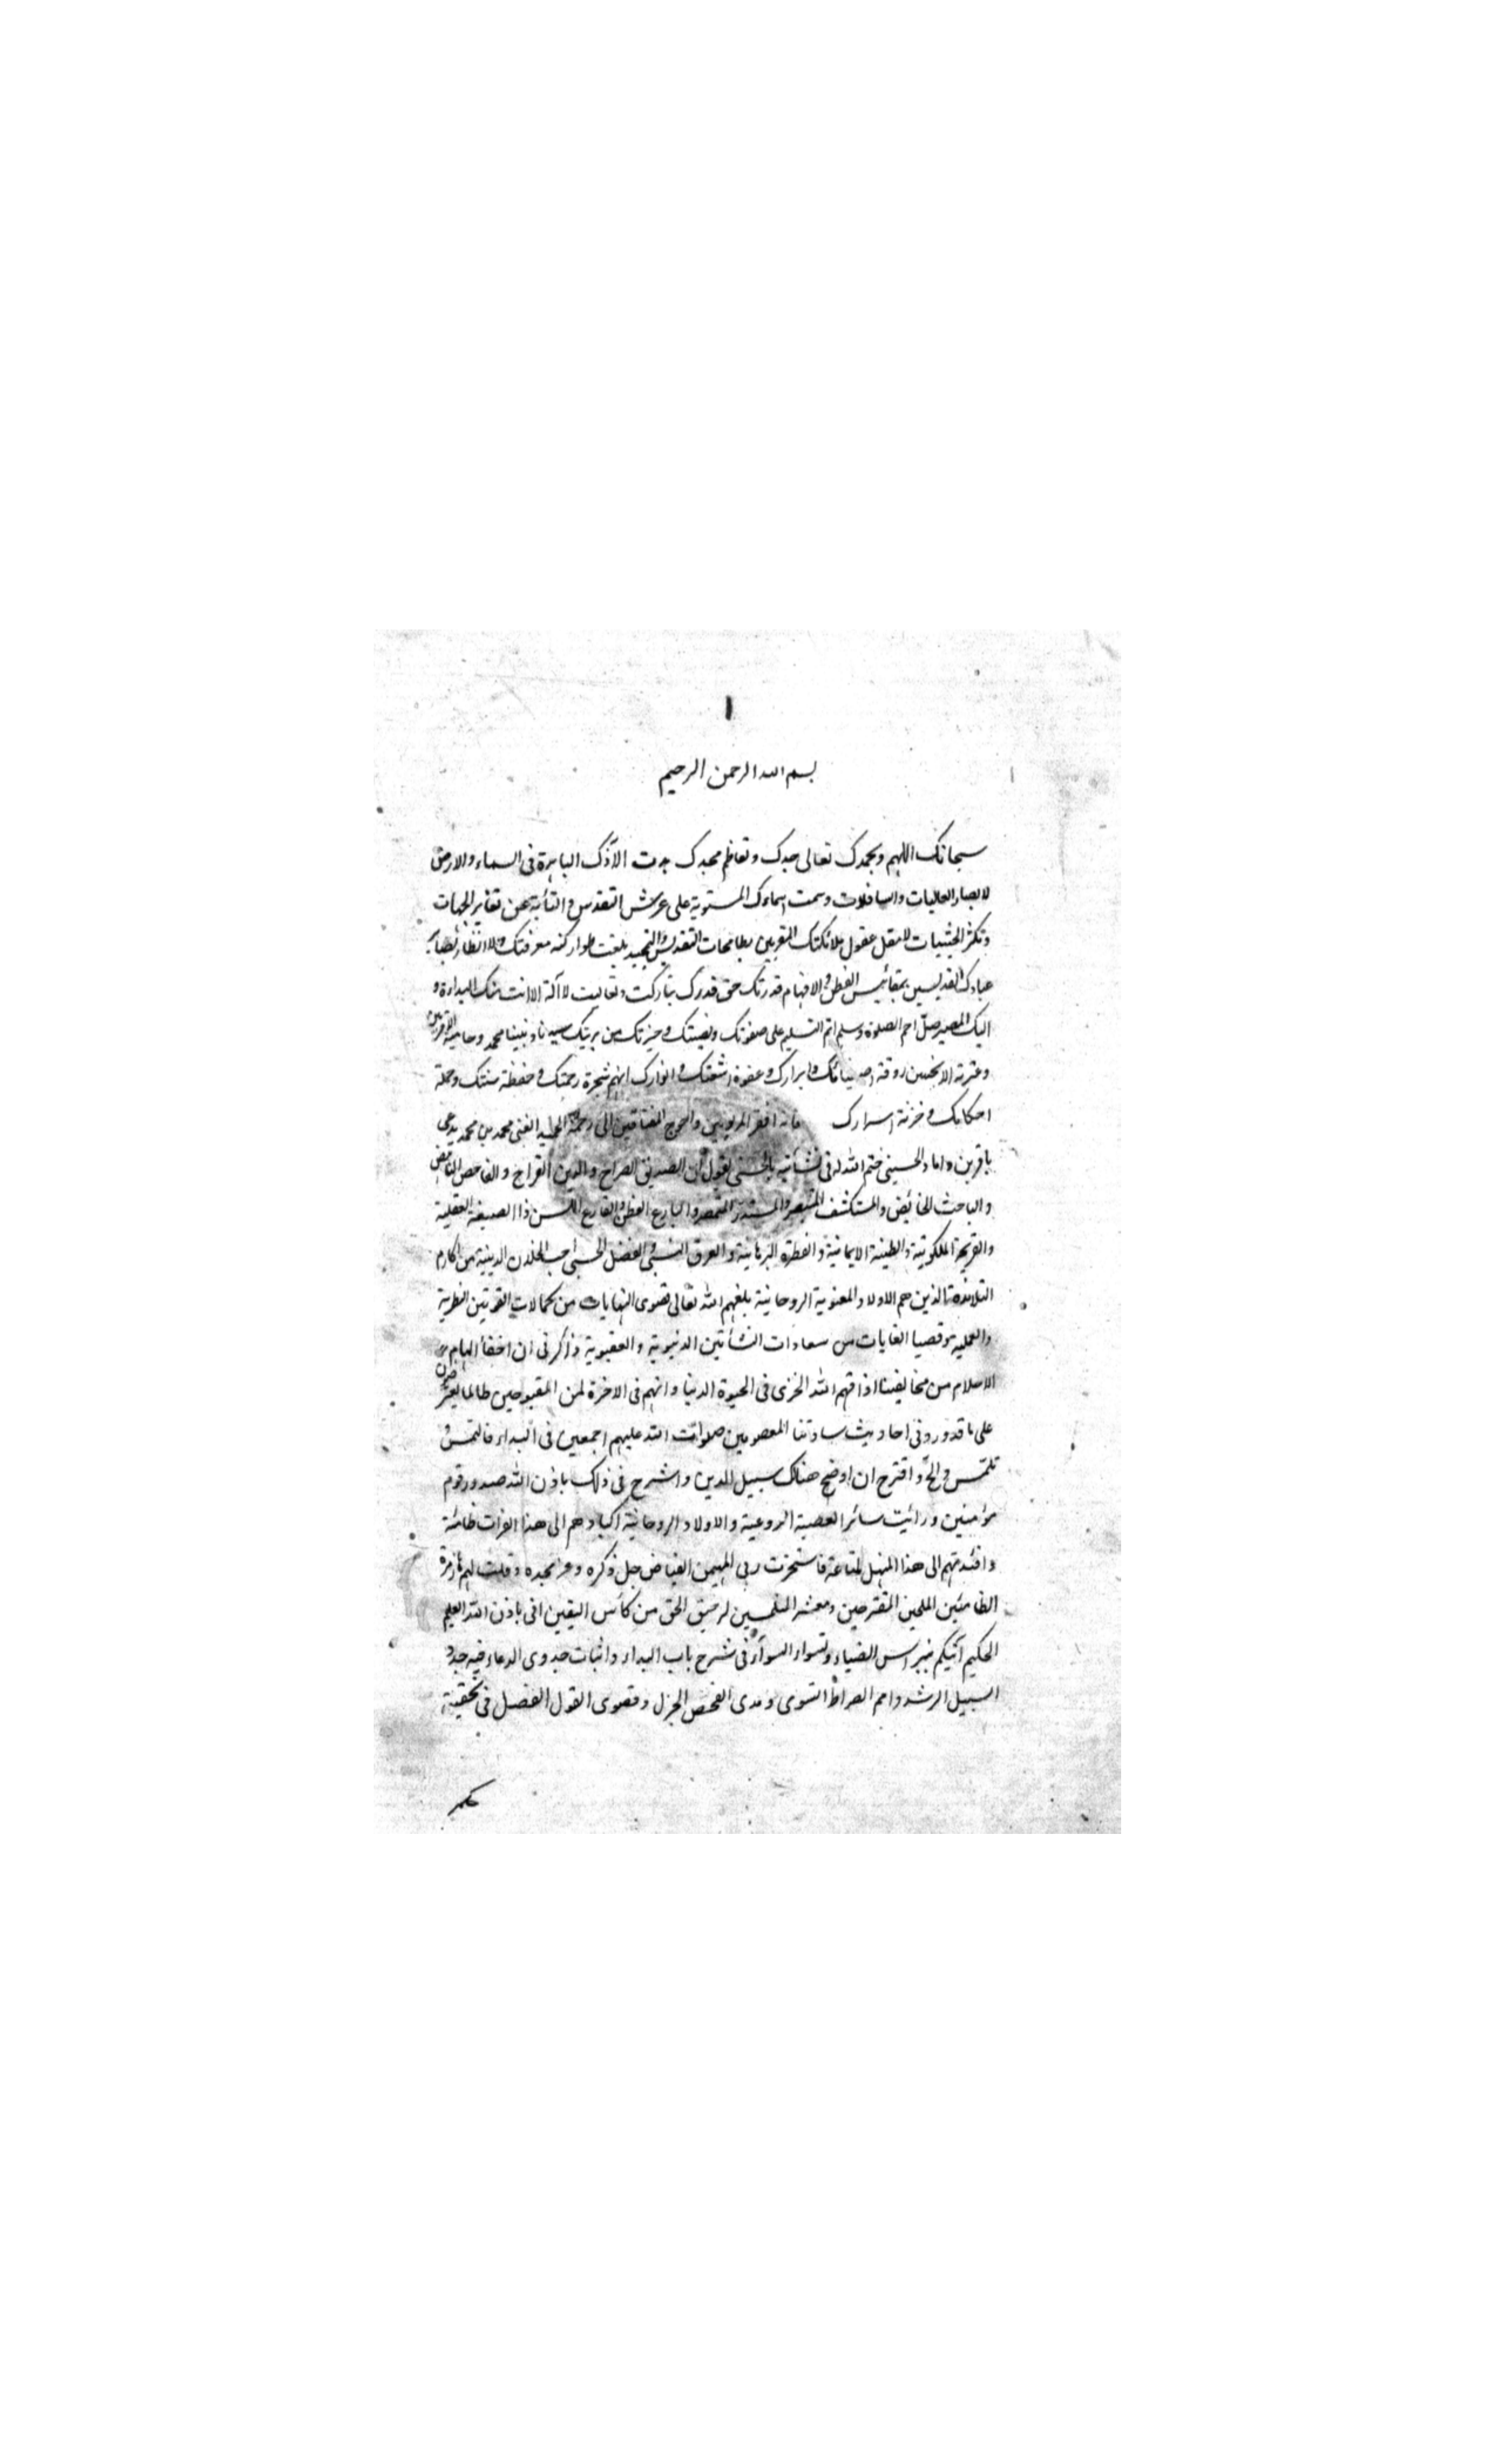 ١
بسم الله الرحمن الرحيم
سبحانك اللهم وبحمدك تعالى جدك وتعاظم مجدك بدت الآؤك الباهرة فى السماء والارض
لابصار العاليات والسافلات وسمت اسماءك المستوية على عرش التقدس و التأبه عن تغاير الجهات
وتكثر الحيثيات عقول ملائكتك المقربين بطامحات التقديس والتمجيد كنه معرفتك
عبادك القديسين بمقائيس الفطن والافهام قدرتك حق قدرك تباركت وتعاليت لا آله الا انت منك البداءة و
اليك المصير صل اتم الصلوة وسلم اتم التسليم على صفوتك وخيرتك من بريتك سيدنا ونبينا محمد وحامته الاقربين
وعترته الانجبين روقة اصفيائك و ابرارك و اشعتك و انوارك انهم شجرة رحمتك و حفظة سنتك وحملة
احكامك و خزنة اسرارك فان افقر المربوبين واحوج المفتاقين الى رحمة الحميد الغنى محمد بن محمد يدعى
باقر بن داماد الحسينى ختم الله له فى نشأتيه بالحسنى يقول ان الصديق الصراح والدين القراح والفاحص
والباحث الخائض والمستكشف المتبصر البارع الفطن ذا الصيغة العقلية
والقريحة الملكوتية والطينة الايمانية و الفطرة البرهانية و العرق النسبى والفضل الحسبى احب الخلان الدينية من اكارم
التلامذة الذين هم الاولاد المعنوية الروحانية بلغهم الله تعالى قصوى النهايات من كمالات القوتين النظرية
والعملية وقصيا الغايات من سعادات النشأتين الدنيوية والعقبوية ذاكرنى ان
الاحلام من مخالفينا اذاقهم الله الخزى فى الحيوة الدنيا وانهم فى الاخرة لمن المقبوحين طالما يعترضون
على ما قد ورد فى احاديث سادتنا المعصومين صلوات الله عليهم اجمعين فى البداء فالتمس و
تلمس و الح و اقترح ان اوضح هنالك سبيل الدين و اشرح فى ذلك باذن الله صدور قوم
مؤمنين ورأيت سائر العصبة الروعية والاولاد الروحانية اكبادهم الى هذا الفرات ظامئة
وافئدتهم الى هذا المنهل ملتاعة فاستخرت ربى المهيمن الفياض جل ذكره وعز مجده وقلت لهم يا زمرة
الظامئين الملحين المقترحين ومعشر الملتمسين لرحيق الحق من كأس اليقين انى باذن الله العليم
الحكيم آتيكم بنبراس الضياء وتسواء السواء فى شرح باب البداء واثبات جدوى الدعاء فهذه جدد
السبيل الرشد وامم الصراط السوى ومدى الفحص الجزل وقصوى القول الفصل فى تحقيق